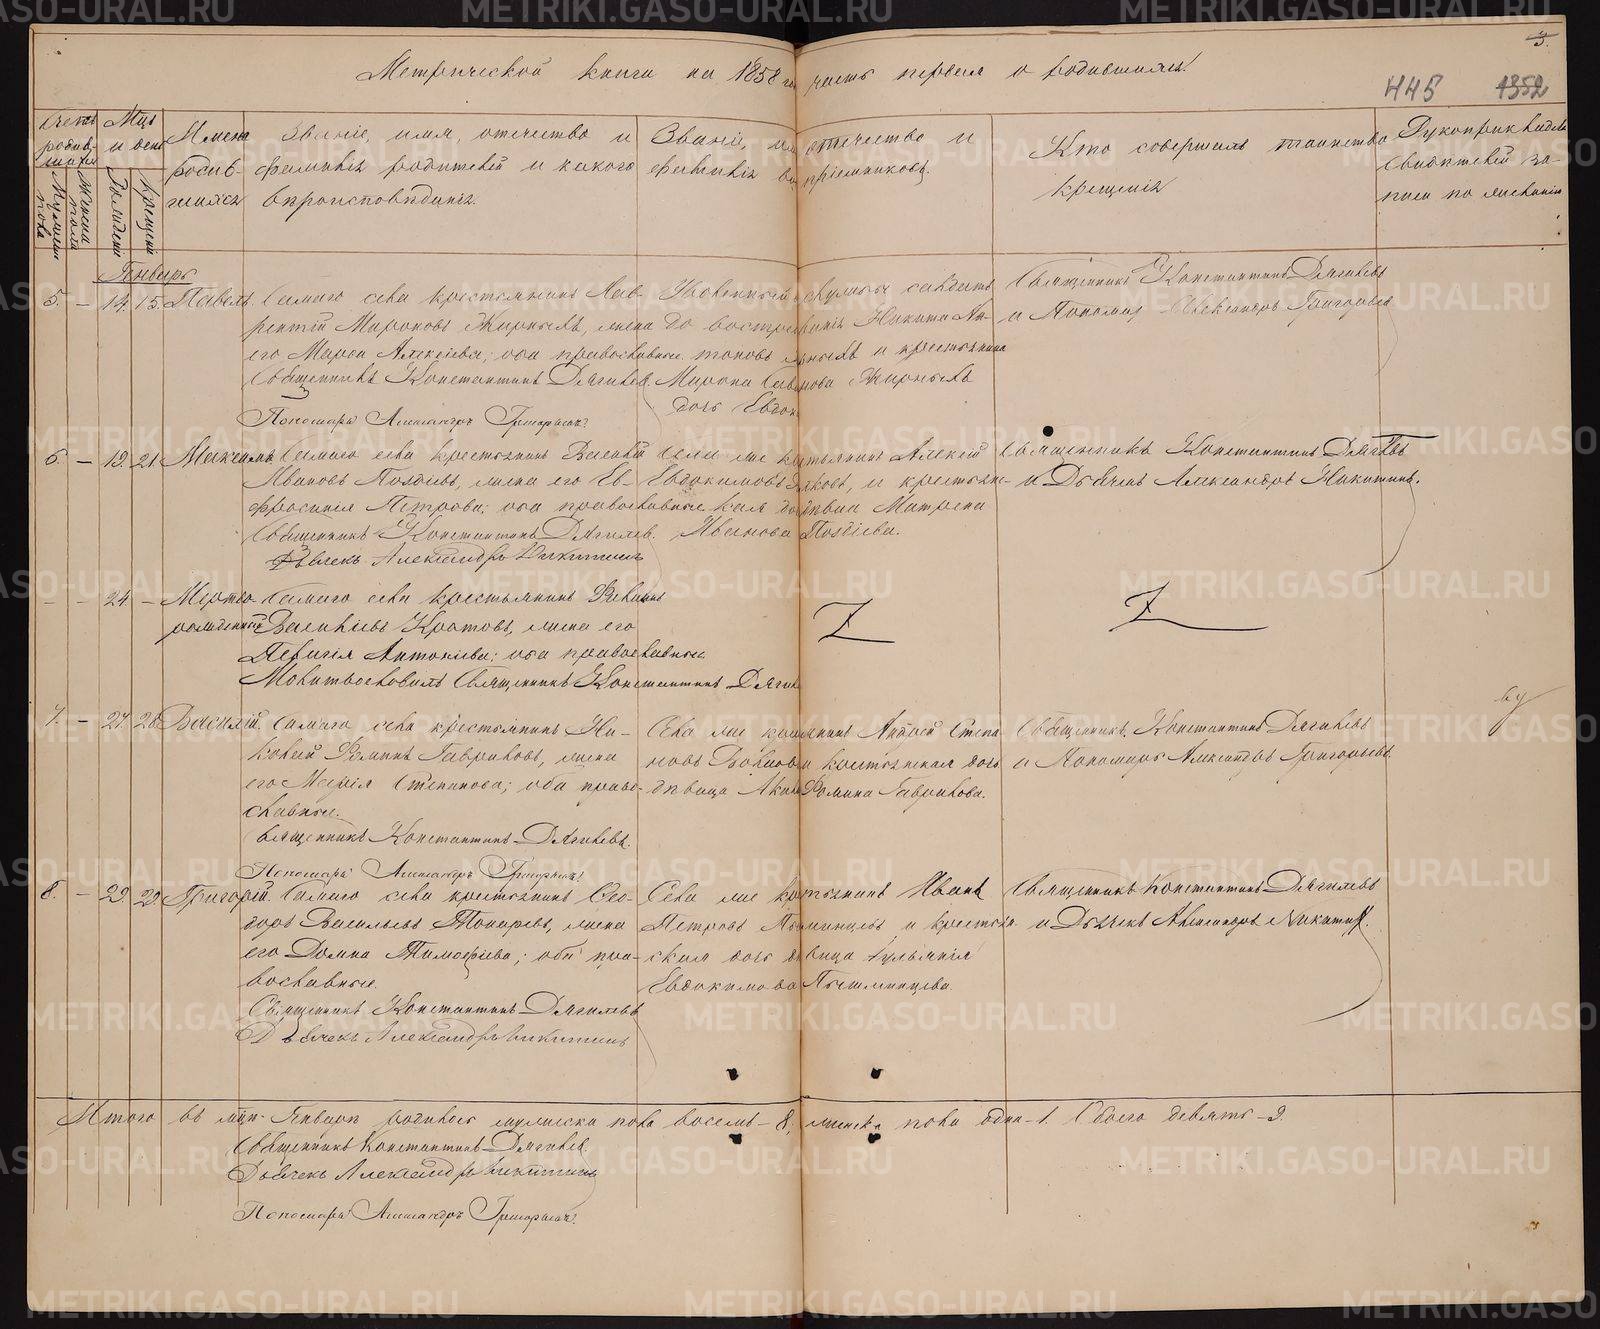 Метрической книги на 1858 го часть первая о родившихся.
3.
445 1352
Счетъ родив-шихся
Мужеска пола
Женска пола
Мцъ и день
Рожденiя
Крещенiя
Имена родив-шихся
Званiе, имя, отчество и
фамилiя родителей и какого
вѣроисповѣданiя.
Званiе, имя отчество и
фамилiя воспрiемниковъ.
Кто совершалъ таинство
крещенiя
Рукоприкладство
свидѣтелей за-
писи по желанiю
Январь
5. – 14. 15. Павелъ Самаго села крестьянинъ Лав-
рентiй Мироновъ Жирныхъ, жена
его Марфа Алексѣева; оба православные.
Священникъ Константинъ Дягилевъ.
Пономарь Александръ Григорьевъ.
солдатъ
до востребованiя Никита Ан-
тоновъ и крестьянина
Мирона Жирныхъ
дочь Евдок
Священникъ Константинъ Дягилевъ
и Пономарь Александръ Григорьевъ
6. – 19. 21. Максимъ. Самаго села крестьянинъ Василiй
Ивановъ Поздѣевъ, жена его Ев-
фросинiя Петрова; оба православные.
Священникъ Константинъ Дягилевъ.
Дьячекъ Александръ Никитинъ
Села же крестьянинъ Алексѣй
Евдокимовъ и крестьян-
ская дѣвица Матрена
Иванова Поздѣева.
Священникъ Константинъ Дягилевъ
и Дьячекъ Александръ Никитинъ.
– – 24 – Мертво-рожденный
Самаго села крестьянинъ
Васильевъ Кротовъ, жена его
Пелагiя Антонiева; оба православные.
Молитвословилъ Священникъ Константинъ Дягил
7. – 27. 28. Василiй. Самаго села крестьянинъ Ни-
колай Фоминъ Гавриловъ, жена
его Марiя Степанова; оба право-
славные.
Священникъ Константинъ Дягилевъ.
Пономарь Александръ Григорьевъ.
Села же крестьянинъ Андрей Степа-
новъ и крестьянская дочь
дѣвица Фомина Гаврилова.
Священникъ Константинъ Дягилевъ
и Пономарь Александръ Григорьевъ.
8. – 29. 29. Григорiй. Самаго села крестьянинъ Фео-
доръ Васильевъ, жена
его Домна Тимофѣева; оба пра-
вославные.
Священникъ Константинъ Дягилевъ
Дьячекъ Александръ Никитинъ
Села же крестьянинъ Иванъ
Петровъ Пышминцевъ и крестьян-
ская дочь дѣвица Iульянiя
Евдокимова Пышминцева.
Священникъ Константинъ Дягилевъ
и Дьячекъ Александръ Никитинъ.
Итого въ мцѣ Январѣ родилось мужеска пола восемь – 8, женска пола одна – 1. Обоего девять – 9.
Священникъ Константинъ Дягилевъ.
Дьячекъ Александръ Никитинъ
Пономарь Александръ Григорьевъ.
METRIKI.GASO-URAL.RU